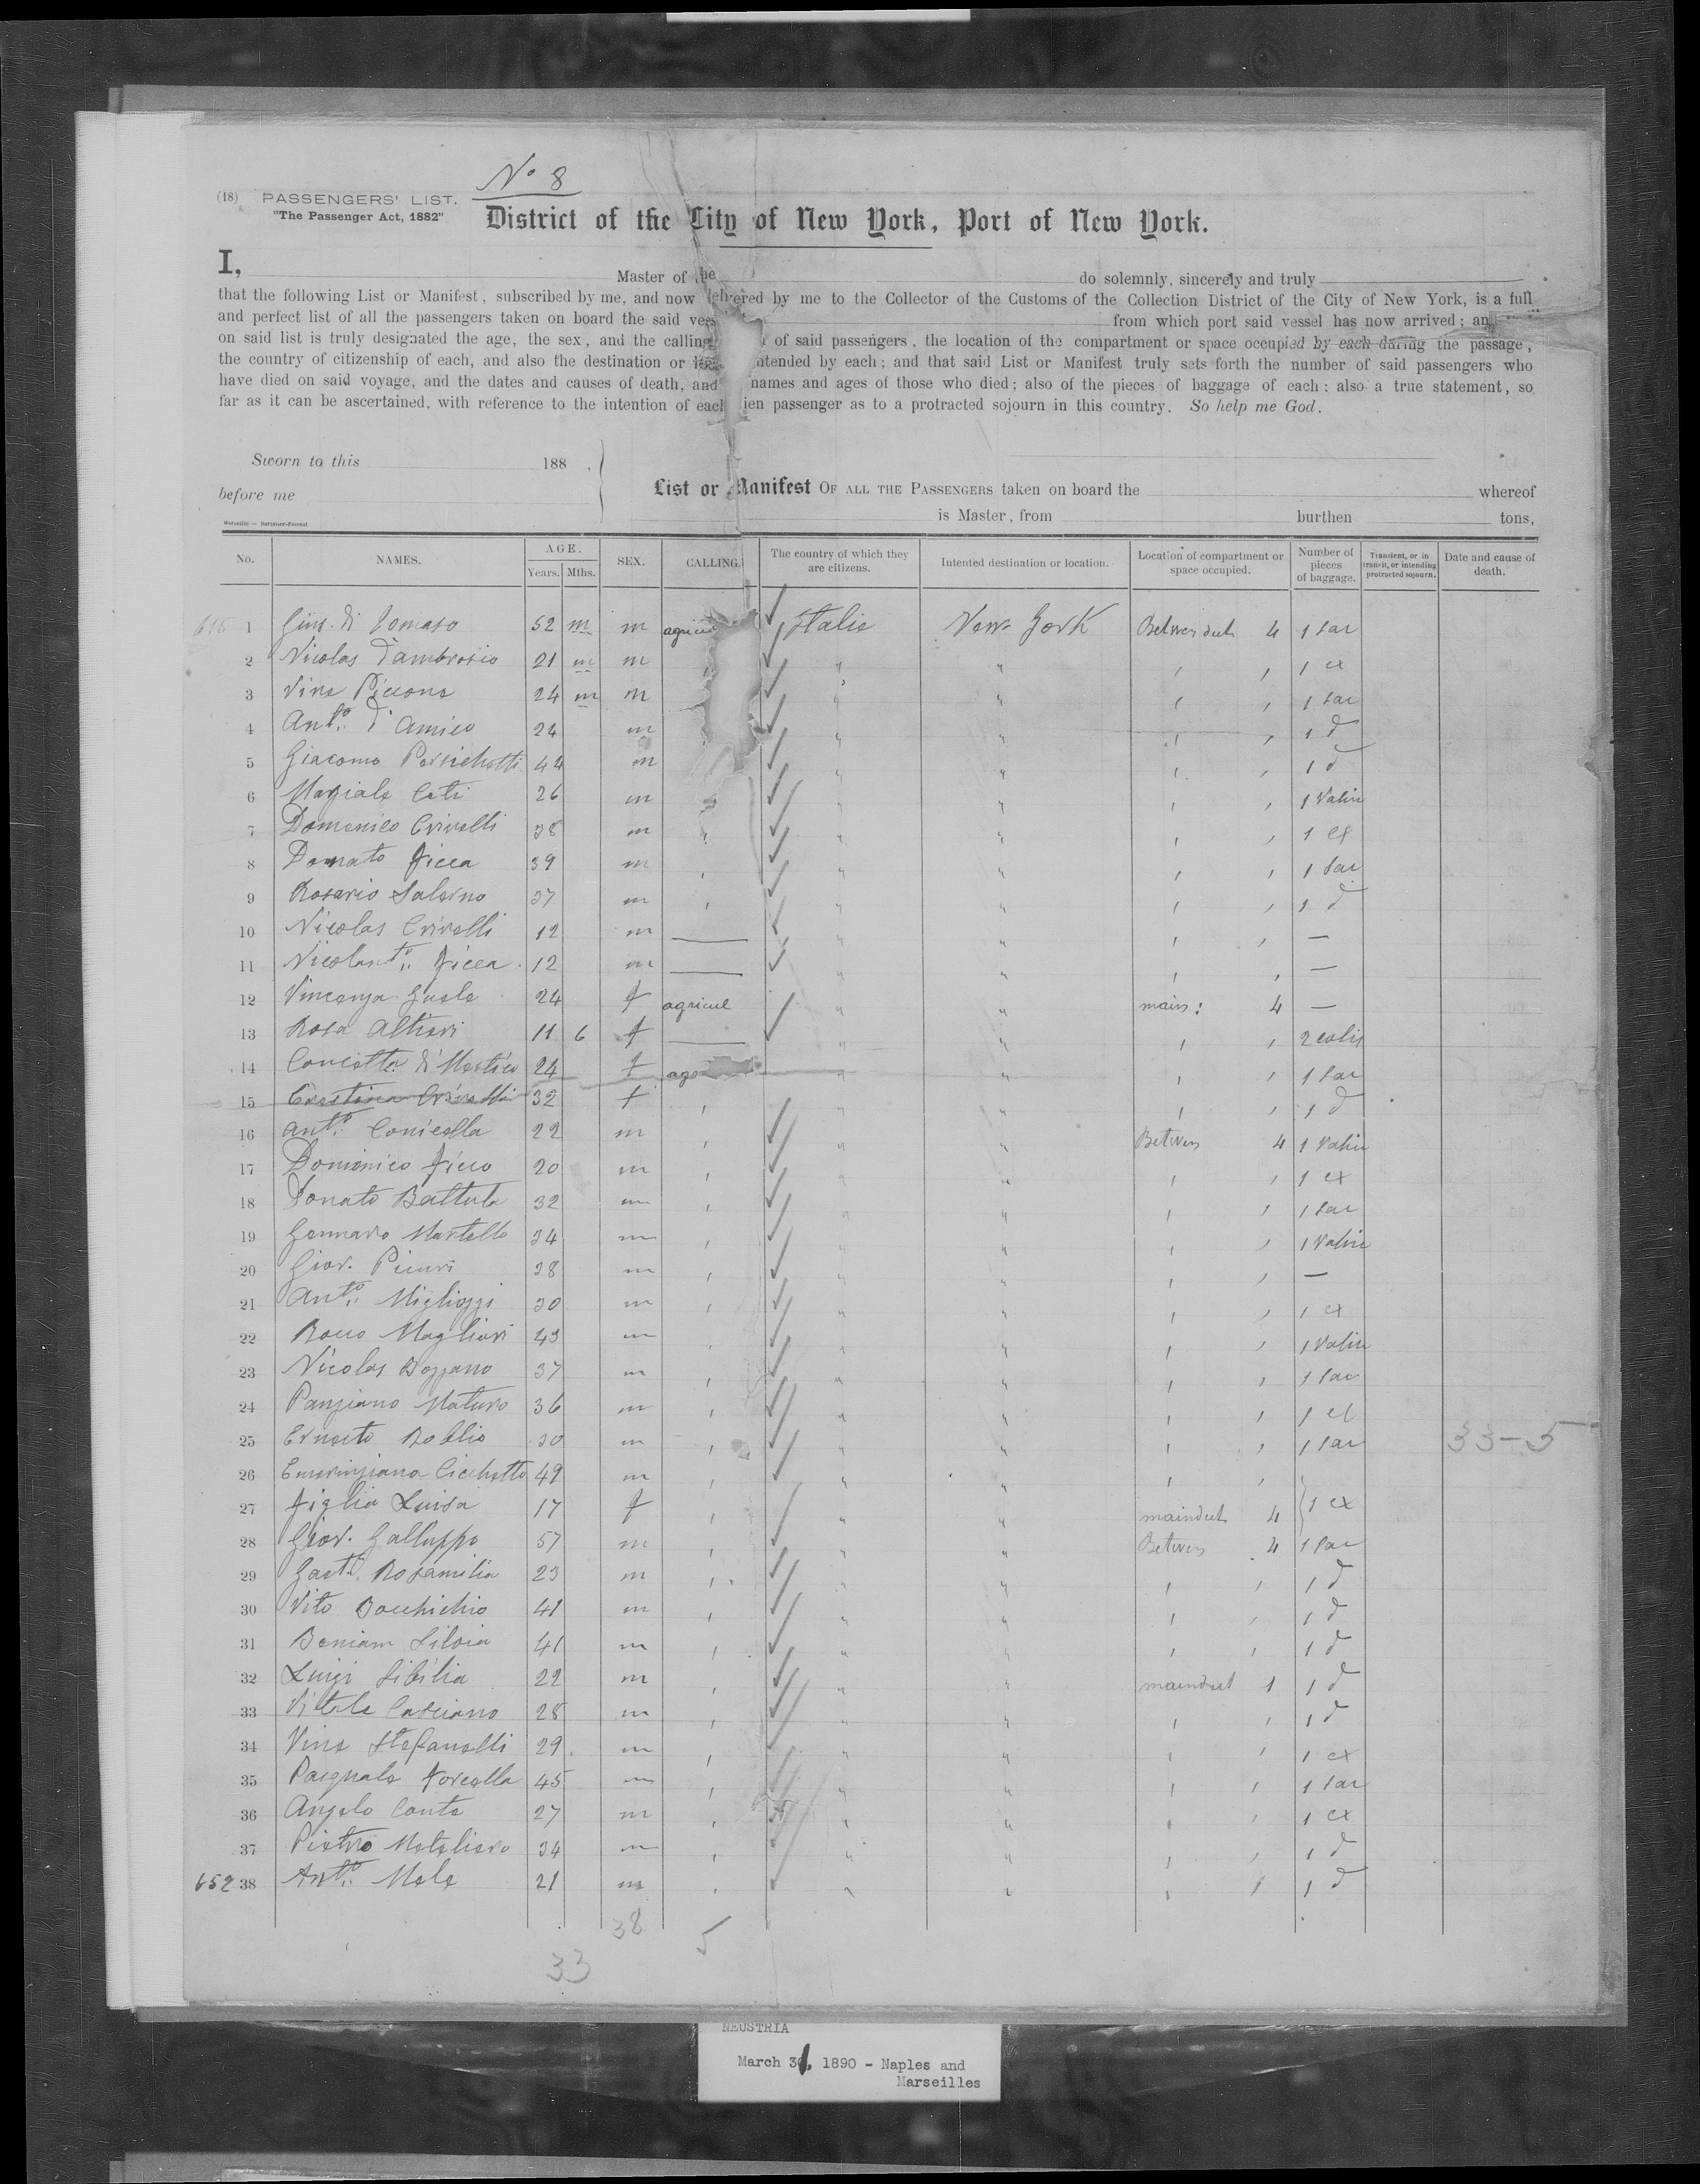 No 8
(18) PASSENGERS' LIST.
"The Passenger Act, 1882"
District of the City of New York, Port of New York.
I, Master of the do solemnly, sincerely and truly
that the following List or Manifest, subscribed by me, and now delivered by me to the Collector of the Customs of the Collection District of the City of New York, is a full
and perfect list of all the passengers taken on board the said from which port said vessel has now arrived;
on said list is truly designated the age, the sex, and the calling of said passengers, the location of the compartment or space occupied by each during the passage,
the country of citizenship of each, and also the destination or intended by each; and that said List or Manifest truly sets forth the number of said passengers who
have died on said voyage, and the dates and causes of death, and names and ages of those who died; also of the pieces of baggage of each: also a true statement, so
far as it can be ascertained, with reference to the intention of each passenger as to a protracted sojourn in this country. So help me God.
Sworn to this 188 .
before me
List or Manifest OF ALL THE PASSENGERS taken on board the whereof
is Master, from burthen tons,
No. NAMES. AGE. Years. Mths. SEX. CALLING. The country of which they are citizens. Intented destination or location. Location of compartment or space occupied. Number of pieces of baggage. Transient, or in transit, or intending protracted sojourn. Date and cause of death.
615 1 di Tomaso 52 m m Italie New York 4 1 sac
2 Nicolas D'ambrosio 21 m m " " , , 1 ex
3 Vinc Piccone 24 m m " " , , 1 sac
4 Anto d'Amico 24 m " " , , 1 d
5 Giacomo Persichetti 44 m " " , , 1 d
6 Ceti 26 m " " , , 1 Valise
7 Domenico Crivelli 38 m " " , , 1 ex
8 Donato Ficca 39 m , " " , , 1 sac
9 Rosario Salerno 37 m , " " , , 1 d
10 Nicolas Crivelli 12 m — " " , , —
11 Nicolanto Ficca 12 m — " " , , —
12 Vincenza 24 f agricul " " main: 4 —
13 Rosa Altieri 11 6 f — " " , , 2 colis
14 Concetta di 24 f " " , , 1 sac
15 Cristina Crivelli 32 f , " " , , 1 d
16 Anto Conicella 22 m , " " Between 4 1 Valise
17 Domenico Ficco 20 m , " " , , 1 ex
18 Donato Battuta 32 m , " " , , 1 sac
19 Gennaro Martello 34 m , " " , , 1 Valise
20 Giov. 38 m , " " , , —
21 Anto Migliozzi 30 m , " " , , 1 ex
22 Rocco Maglieri 43 m , " " , , 1 Valise
23 Nicolas Bozzano 37 m , " " , , 1 sac
24 Panziano Maturo 36 m , " " , , 1 ex
25 Ernesto 30 m , " " , , 1 sac 33-5
26 Cicchetto 49 m , " " , ,
27 figlia Luisa 17 f , " " maindeck 4 1 ex
28 Giov. Galluppo 57 m , " " Between 4 1 sac
29 Rosamilia 23 m , " " , , 1 d
30 Vito Bocchichio 41 m , " " , , 1 d
31 Beniam Silvia 41 m , " " , , 1 d
32 Luigi Sibilia 22 m , " " maindeck 1 1 d
33 Vitale Casciano 28 m , " " , , 1 d
34 Vinc Stefanelli 29 m , " " , , 1 ex
35 Pasquale Forcella 45 m , " " , , 1 sac
36 Angelo Conte 27 m , " " , , 1 ex
37 Pietro 34 m , " " , , 1 d
652 38 Anto Mele 21 m , " " , , 1 d
38 5
33
NEUSTRIA
March 31, 1890 - Naples and
Marseilles